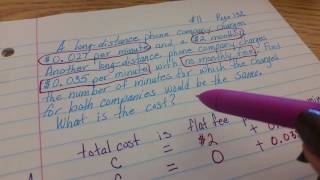 #11 Page 132
A long-distance phone company charges
$0.027 per minute and a $2 monthly
Another long-distance phone company charges
$0.035 per minute with no monthly fee. Find
the number of minutes for which the charges
for both companies would be the same.
What is the cost?
total cost is flat fee
C = $2
C = 0 + 0.03